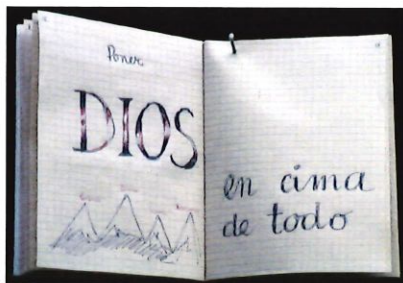 Poner
DIOS
en cima
de todo